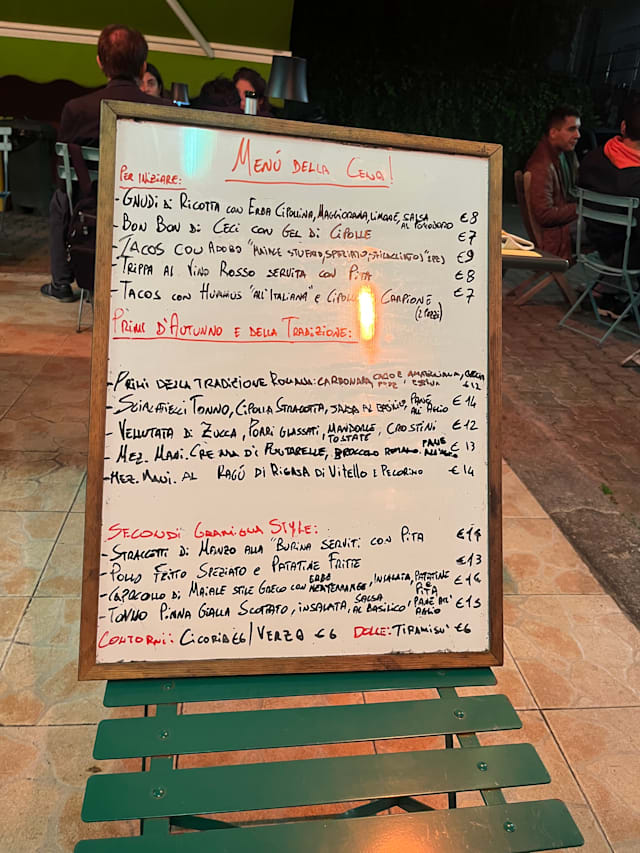 Menú della Cena!
Per iniziare:
- Gnudi di Ricotta con Erba Cipollina, Maggiorana, Limone, salsa al pomodoro €8
- Bon Bon di Ceci con Gel di Cipolle €7
- Tacos con Adobo "Maiale stufato, speziato, sfilacciato) €9
- Trippa al Vino Rosso servita con Pita €8
- Tacos con Hummus "all'italiana" e Cipolla Carpione (2 Pezzi) €7
Primi d'Autunno e della Tradizione:
- Primi della tradizione Romana: Carbonara, Cacio e Pepe, Amatriciana, Gricia €12
- Scialatielli Tonno, Cipolla Stracotta, salsa al basilico, Pane all'aglio €14
- Vellutata di Zucca, Porri glassati, Mandorle tostate, Crostini €12
- Mez. Mani. Crema di Puntarelle, Broccolo Romano, Pane all'aglio €13
- Mez. Mani. al Ragú di Rigaga di Vitello e Pecorino €14
Secondi Gramigna Style:
- Straccetti di Manzo alla "Burina serviti con Pita €14
- Pollo Fritto Speziato e Patatine Fritte €13
- Capocollo di Maiale stile Greco con erbe mediterranee, insalata, Patatine e Pita €16
- Tonno Pinna Gialla Scottato, insalata, salsa al basilico, Pane all'aglio €15
Contorni: Cicoria €6 / Verza €6 Dolce: Tiramisu' €6